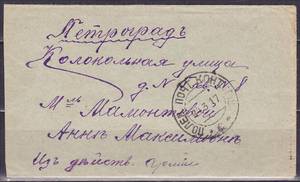 Петроградъ
Колокольная улица
д. №
Мль Мамонтовой
Аннѣ Максимовнѣ
Изъ действ. арміи
ПОЛЕВ. ПОЧТ. КОНТ.
3.17